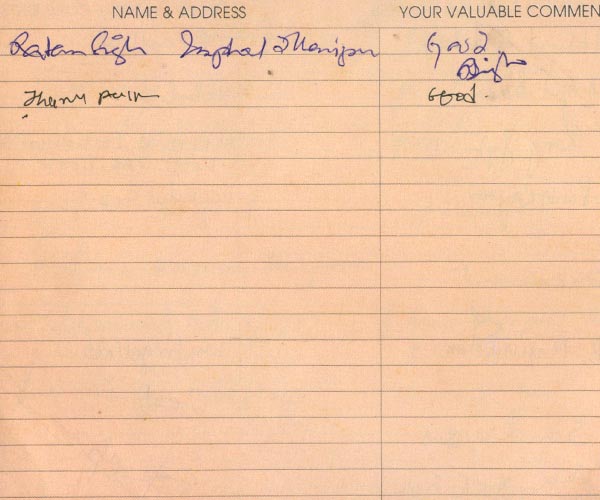 NAME & ADDRESS YOUR VALUABLE COMMEN
Ratan Singh Imphal Manipur Good
Good.